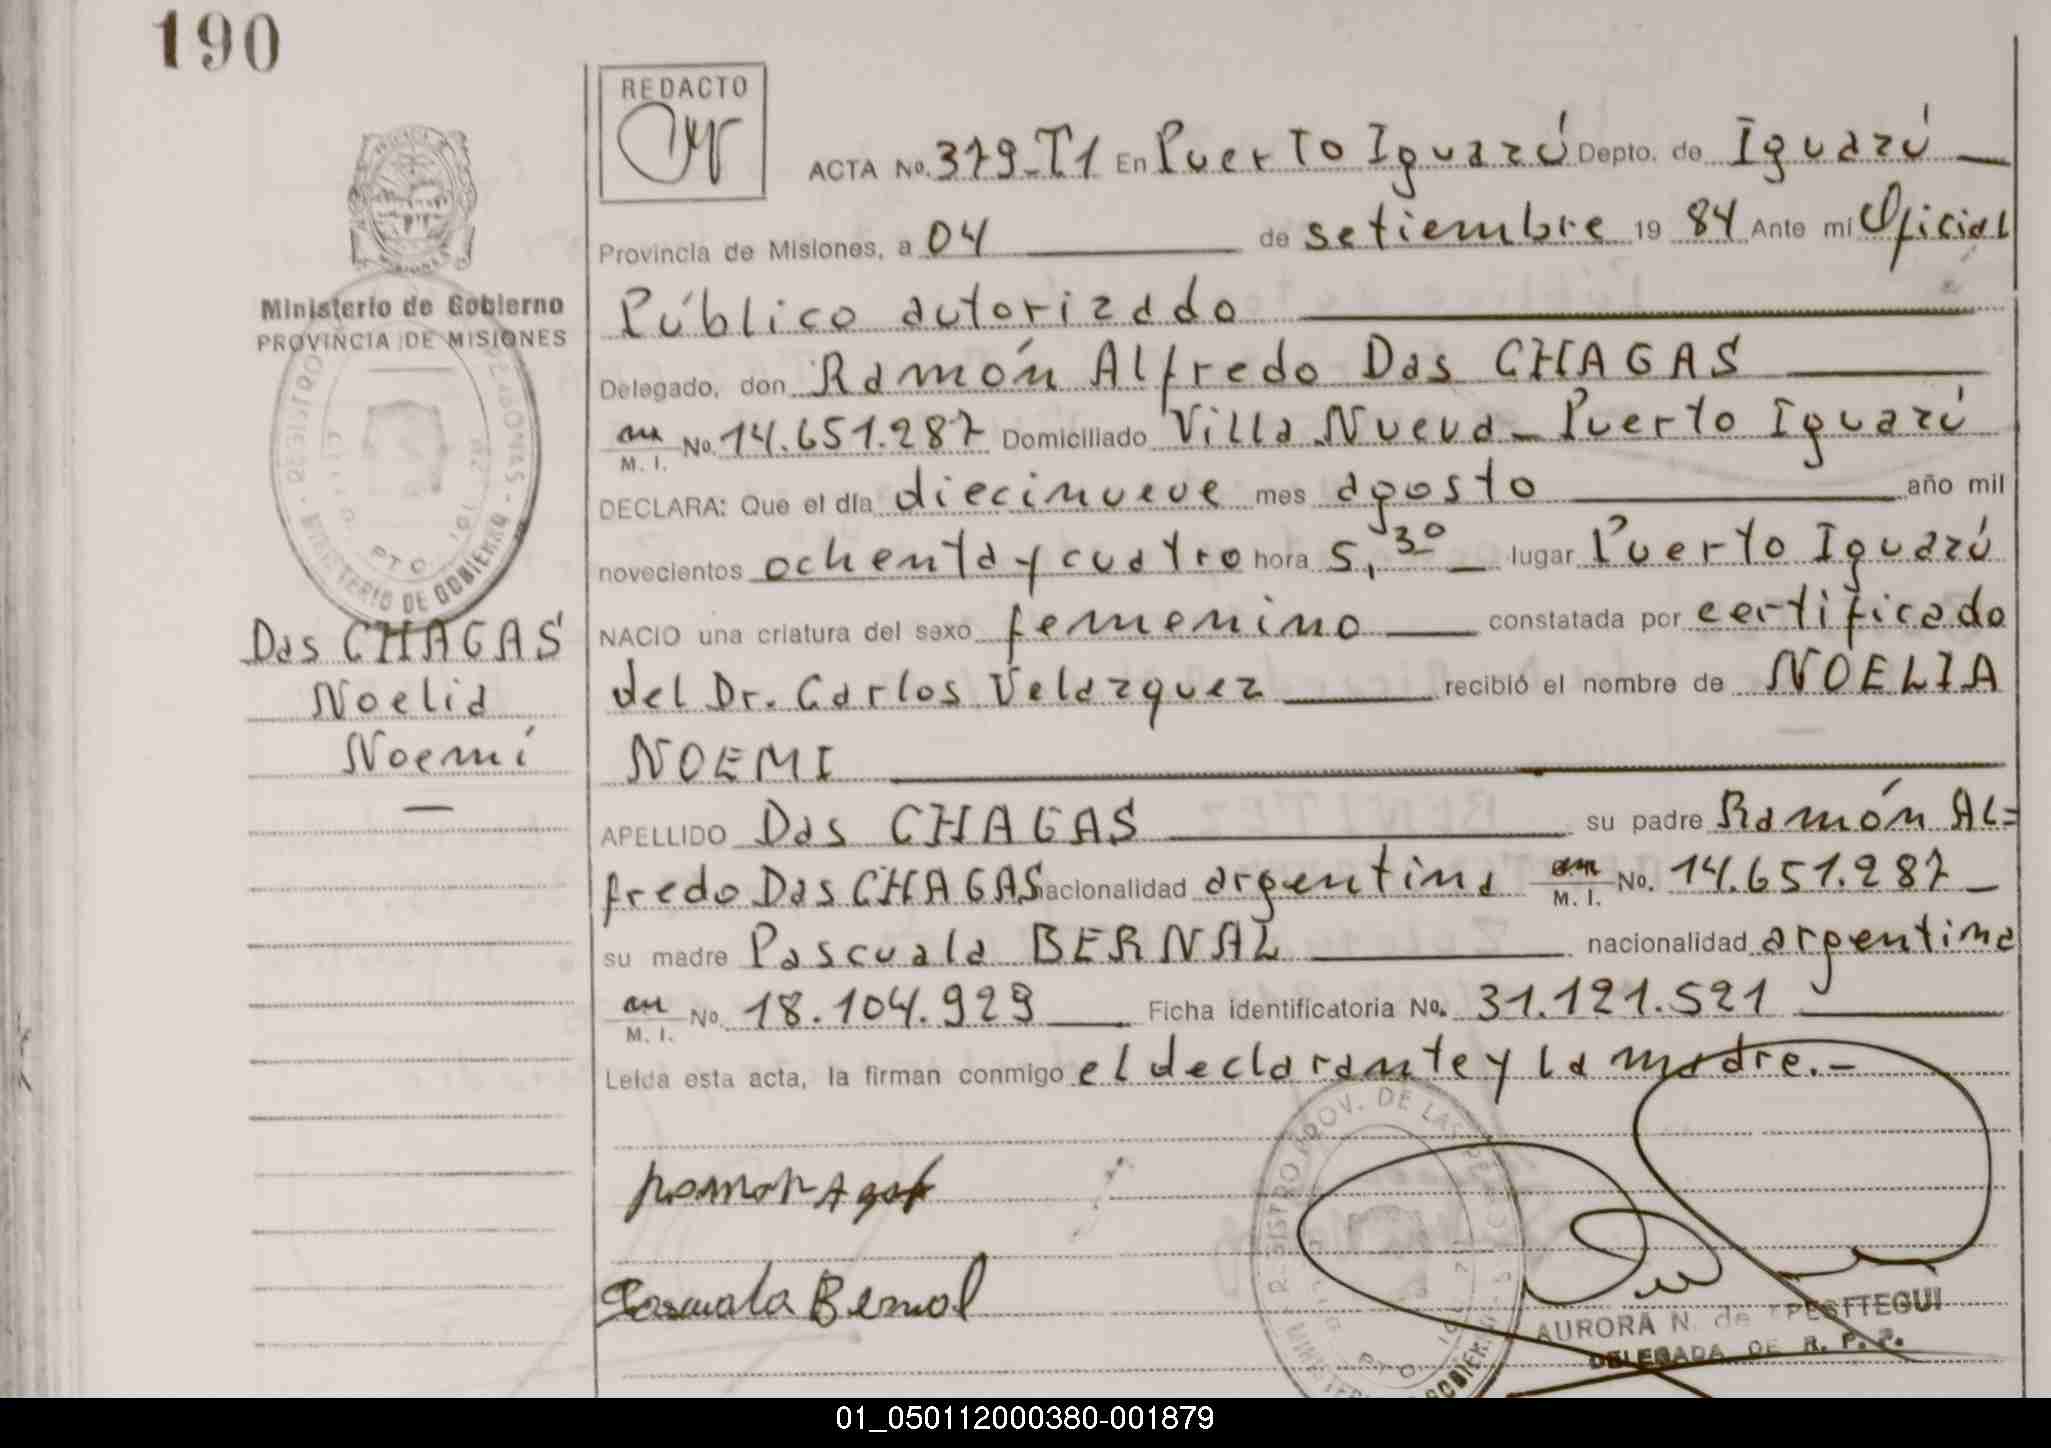 190
REDACTO
ACTA No. 379-T1 En Puerto Iguazú Depto. de Iguazú
Provincia de Misiones, a 04 de setiembre 19 84 Ante mí Oficial
Ministerio de Gobierno
PROVINCIA DE MISIONES
Público autorizado
Delegado, don Ramón Alfredo Das CHAGAS
M. I. No. 14.651.287 Domiciliado Villa Nueva - Puerto Iguazú
DECLARA: Que el día diecinueve mes agosto año mil
novecientos ochenta y cuatro hora 5,30 lugar Puerto Iguazú
NACIO una criatura del sexo femenino constatada por certificado
del Dr. Carlos Velazquez recibió el nombre de NOELIA
NOEMI
Das CHAGAS
Noelia
Noemí
APELLIDO Das CHAGAS su padre Ramón Al=
fredo Das CHAGAS nacionalidad argentina M. I. No. 14.651.287
su madre Pascuala BERNAL nacionalidad argentina
M. I. No. 18.104.929 Ficha identificatoria No. 31.121.521
Leída esta acta, la firman conmigo el declarante y la madre.-
REGISTRO PROV. DE LAS PERSONAS
MINISTERIO DE GOBIERNO
Pascuala Bernal
AURORA N. de
DELEGADA DE R. P. P.
01_050112000380-001879